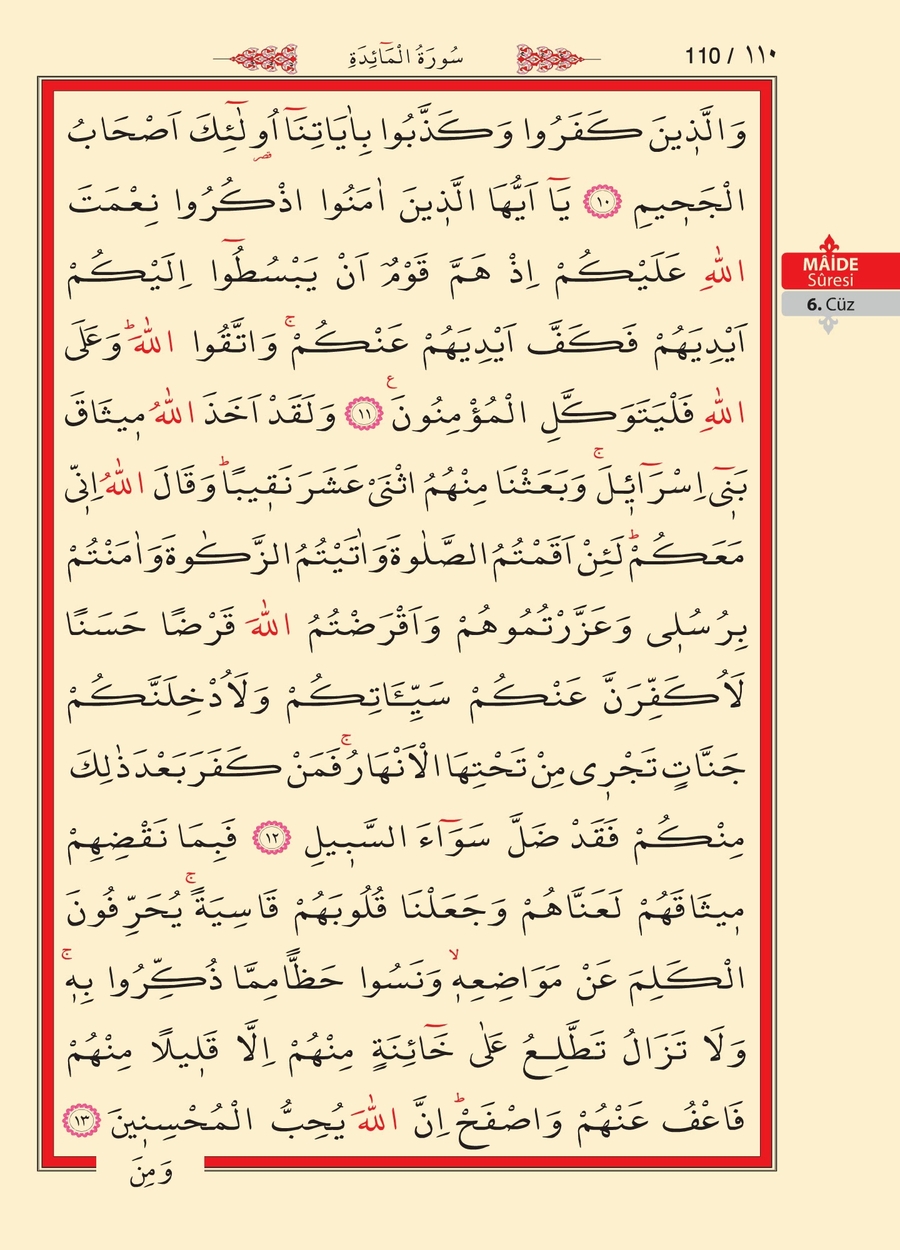 سُورَةُ الْمَٓائِدَةِ
110 / ١١٠
وَالَّذ۪ينَ كَفَرُوا وَكَذَّبُوا بِاٰيَاتِنَٓا اُو۬لٰٓئِكَ اَصْحَابُ
قصر
الْجَح۪يمِ ﴿١٠﴾ يَٓا اَيُّهَا الَّذ۪ينَ اٰمَنُوا اذْكُرُوا نِعْمَتَ
اللّٰهِ عَلَيْكُمْ اِذْ هَمَّ قَوْمٌ اَنْ يَبْسُطُٓوا اِلَيْكُمْ
اَيْدِيَهُمْ فَكَفَّ اَيْدِيَهُمْ عَنْكُمْۚ وَاتَّقُوا اللّٰهَۜ وَعَلَى
اللّٰهِ فَلْيَتَوَكَّلِ الْمُؤْمِنُونَ ع ﴿١١﴾ وَلَقَدْ اَخَذَ اللّٰهُ م۪يثَاقَ
بَن۪ٓي اِسْرَٓائ۪لَۚ وَبَعَثْنَا مِنْهُمُ اثْنَيْ عَشَرَ نَق۪يبًاۜ وَقَالَ اللّٰهُ اِنّ۪ي
مَعَكُمْۜ لَئِنْ اَقَمْتُمُ الصَّلٰوةَ وَاٰتَيْتُمُ الزَّكٰوةَ وَاٰمَنْتُمْ
بِرُسُل۪ي وَعَزَّرْتُمُوهُمْ وَاَقْرَضْتُمُ اللّٰهَ قَرْضًا حَسَنًا
لَاُكَفِّرَنَّ عَنْكُمْ سَيِّـَٔاتِكُمْ وَلَاُدْخِلَنَّكُمْ
جَنَّاتٍ تَجْر۪ي مِنْ تَحْتِهَا الْاَنْهَارُۚ فَمَنْ كَفَرَ بَعْدَ ذٰلِكَ
مِنْكُمْ فَقَدْ ضَلَّ سَوَٓاءَ السَّب۪يلِ ﴿١٢﴾ فَبِمَا نَقْضِهِمْ
م۪يثَاقَهُمْ لَعَنَّاهُمْ وَجَعَلْنَا قُلُوبَهُمْ قَاسِيَةًۚ يُحَرِّفُونَ
الْكَلِمَ عَنْ مَوَاضِعِه۪ۙ وَنَسُوا حَظًّا مِمَّا ذُكِّرُوا بِه۪ۚ
وَلَا تَزَالُ تَطَّلِعُ عَلٰى خَٓائِنَةٍ مِنْهُمْ اِلَّا قَل۪يلًا مِنْهُمْ
فَاعْفُ عَنْهُمْ وَاصْفَحْۜ اِنَّ اللّٰهَ يُحِبُّ الْمُحْسِن۪ينَ ﴿١٣﴾
وَمِنَ
MÂİDE
Sûresi
6. Cüz